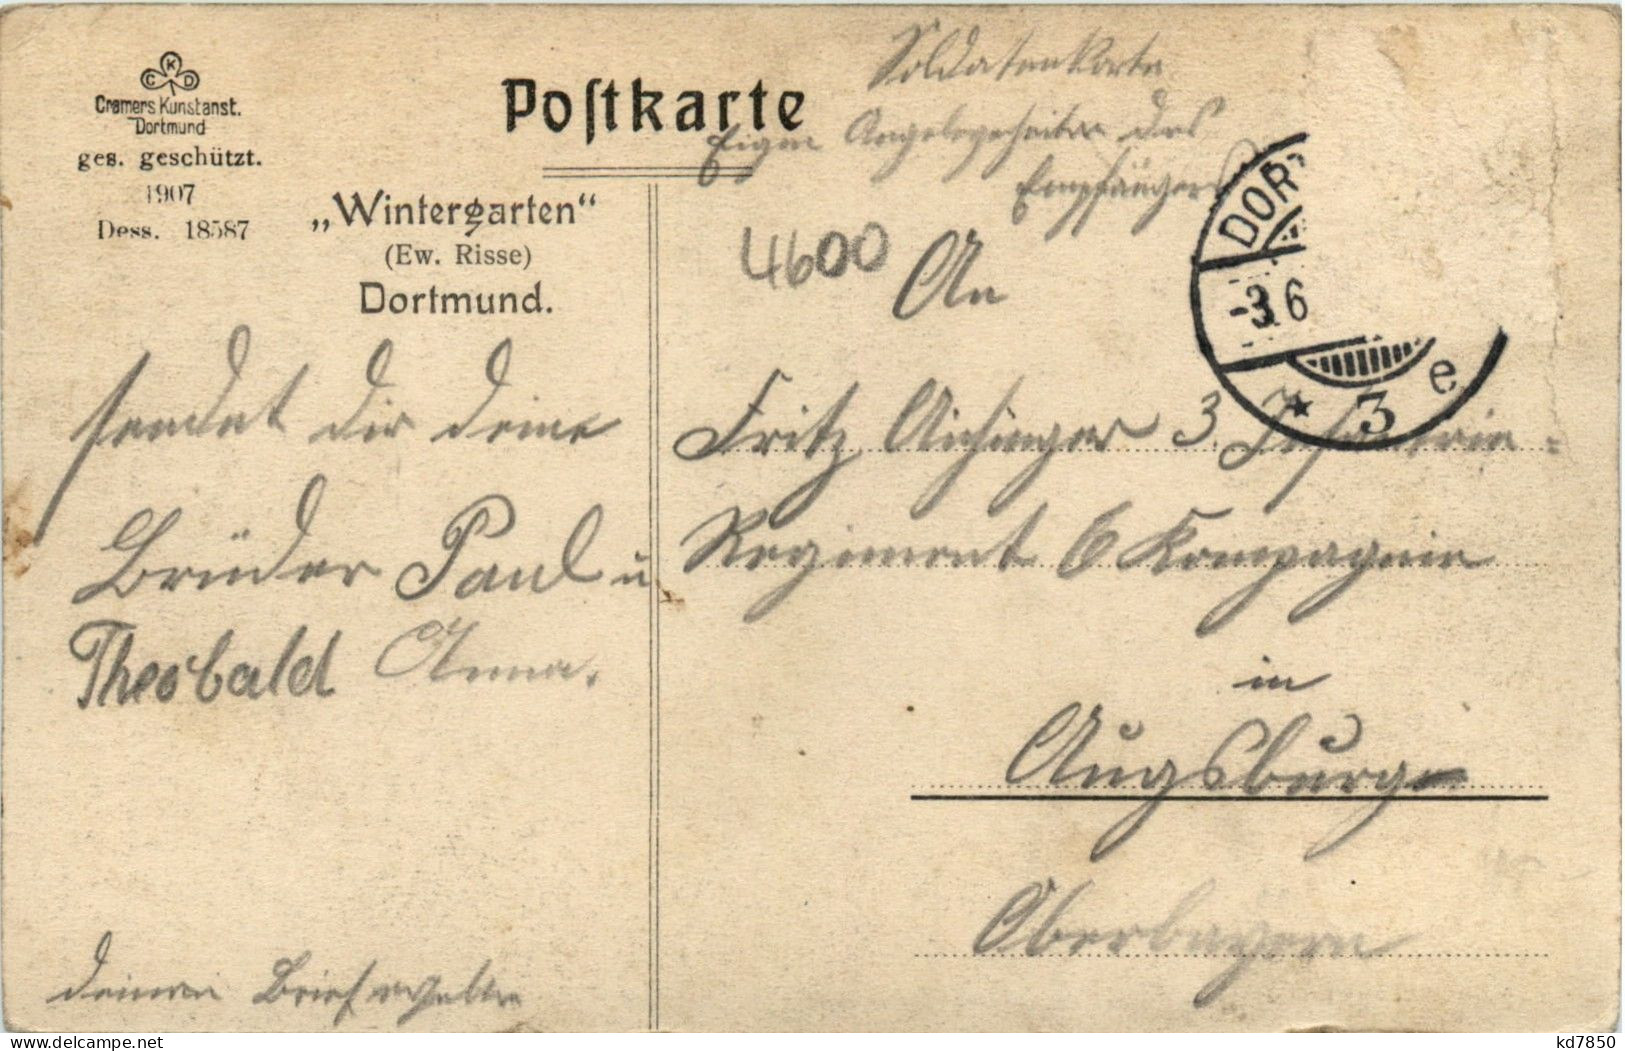 C K D
Cramers Kunstanst.
Dortmund
ges. geschützt.
1907
Dess. 18587
Postkarte
„Wintergarten“
(Ew. Risse)
Dortmund.
Soldatenkarte
Eigen Angelegenheiten des
Empfängers
4600
An
DORT
-3.6
* 3 e
sendet dir deine
Brüder Paul u
Theobald Anna.
deinen Brief erhalten
Fritz Aichinger 3. Infanterie-
Regiment 6 Kompagnie
in
Augsburg
Oberbayern
kd7850